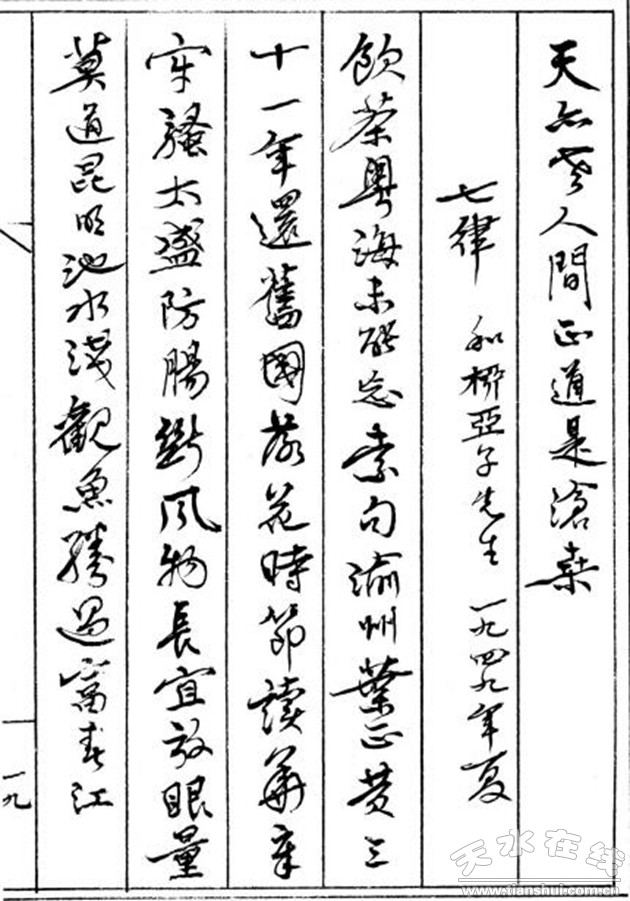 天亦老人間正道是滄桑
七律 和柳亞子先生 一九四九年夏
飲茶粵海未能忘索句渝州葉正黃三
十一年還舊國落花時節讀華章
牢騷太盛防腸斷風物長宜放眼量
莫道昆明池水淺觀魚勝過富春江
一九
天水在线
www.tianshui.com.cn